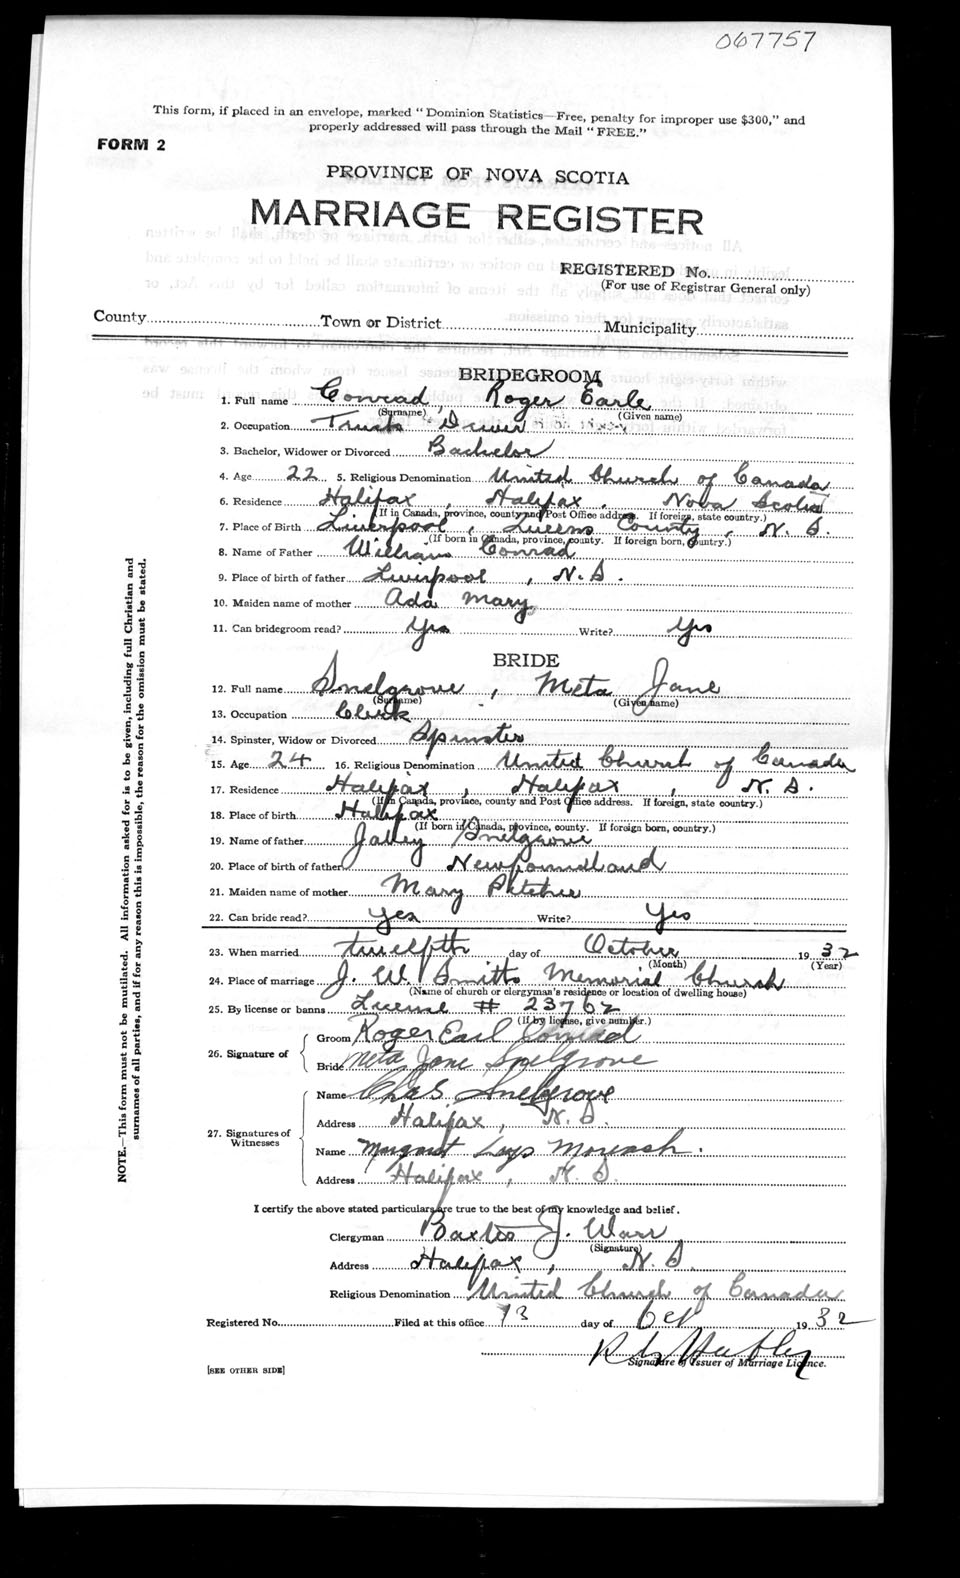 067757
This form, if placed in an envelope, marked " Dominion Statistics—Free, penalty for improper use $300," and
properly addressed will pass through the Mail " FREE."
FORM 2
PROVINCE OF NOVA SCOTIA
MARRIAGE REGISTER
REGISTERED No.
(For use of Registrar General only)
County Town or District Municipality
BRIDEGROOM
1. Full name Conrad, Roger Earle
(Surname) (Given name)
2. Occupation Truck Driver
3. Bachelor, Widower or Divorced Bachelor
4. Age 22 5. Religious Denomination United Church of Canada
6. Residence Halifax, Halifax, Nova Scotia
(If in Canada, province, county and Post Office address. If foreign, state country.)
7. Place of Birth Liverpool, Queens County, N. S.
(If born in Canada, province, county. If foreign born, country.)
8. Name of Father William Conrad
9. Place of birth of father Liverpool, N. S.
10. Maiden name of mother Ada Mary
11. Can bridegroom read? Yes Write? Yes
BRIDE
12. Full name Snelgrove, Meta Jane
(Surname) (Given name)
13. Occupation Clerk
14. Spinster, Widow or Divorced Spinster
15. Age 24 16. Religious Denomination United Church of Canada
17. Residence Halifax, Halifax, N. S.
(If in Canada, province, county and Post Office address. If foreign, state country.)
18. Place of birth Halifax
(If born in Canada, province, county. If foreign born, country.)
19. Name of father Snelgrove
20. Place of birth of father Newfoundland
21. Maiden name of mother Mary Pitcher
22. Can bride read? Yes Write? Yes
23. When married twelfth day of October 1932
(Month) (Year)
24. Place of marriage J. W. Smith Memorial Church
(Name of church or clergyman's residence or location of dwelling house)
25. By license or banns License # 23762
(If by license, give number.)
26. Signature of Groom Roger Earl Conrad
Bride Meta Jane Snelgrove
27. Signatures of Witnesses
Name Chas Snelgrove
Address Halifax, N. S.
Name Margaret Moreash.
Address Halifax, N. S.
I certify the above stated particulars are true to the best of my knowledge and belief.
Clergyman Baxter J. Warr
(Signature)
Address Halifax, N. S.
Religious Denomination United Church of Canada
Registered No. Filed at this office 13 day of Oct 1932
Signature of Issuer of Marriage Licence.
[SEE OTHER SIDE]
NOTE.—This form must not be mutilated. All information asked for is to be given, including full Christian and
surnames of all parties, and if for any reason this is impossible, the reason for the omission must be stated.